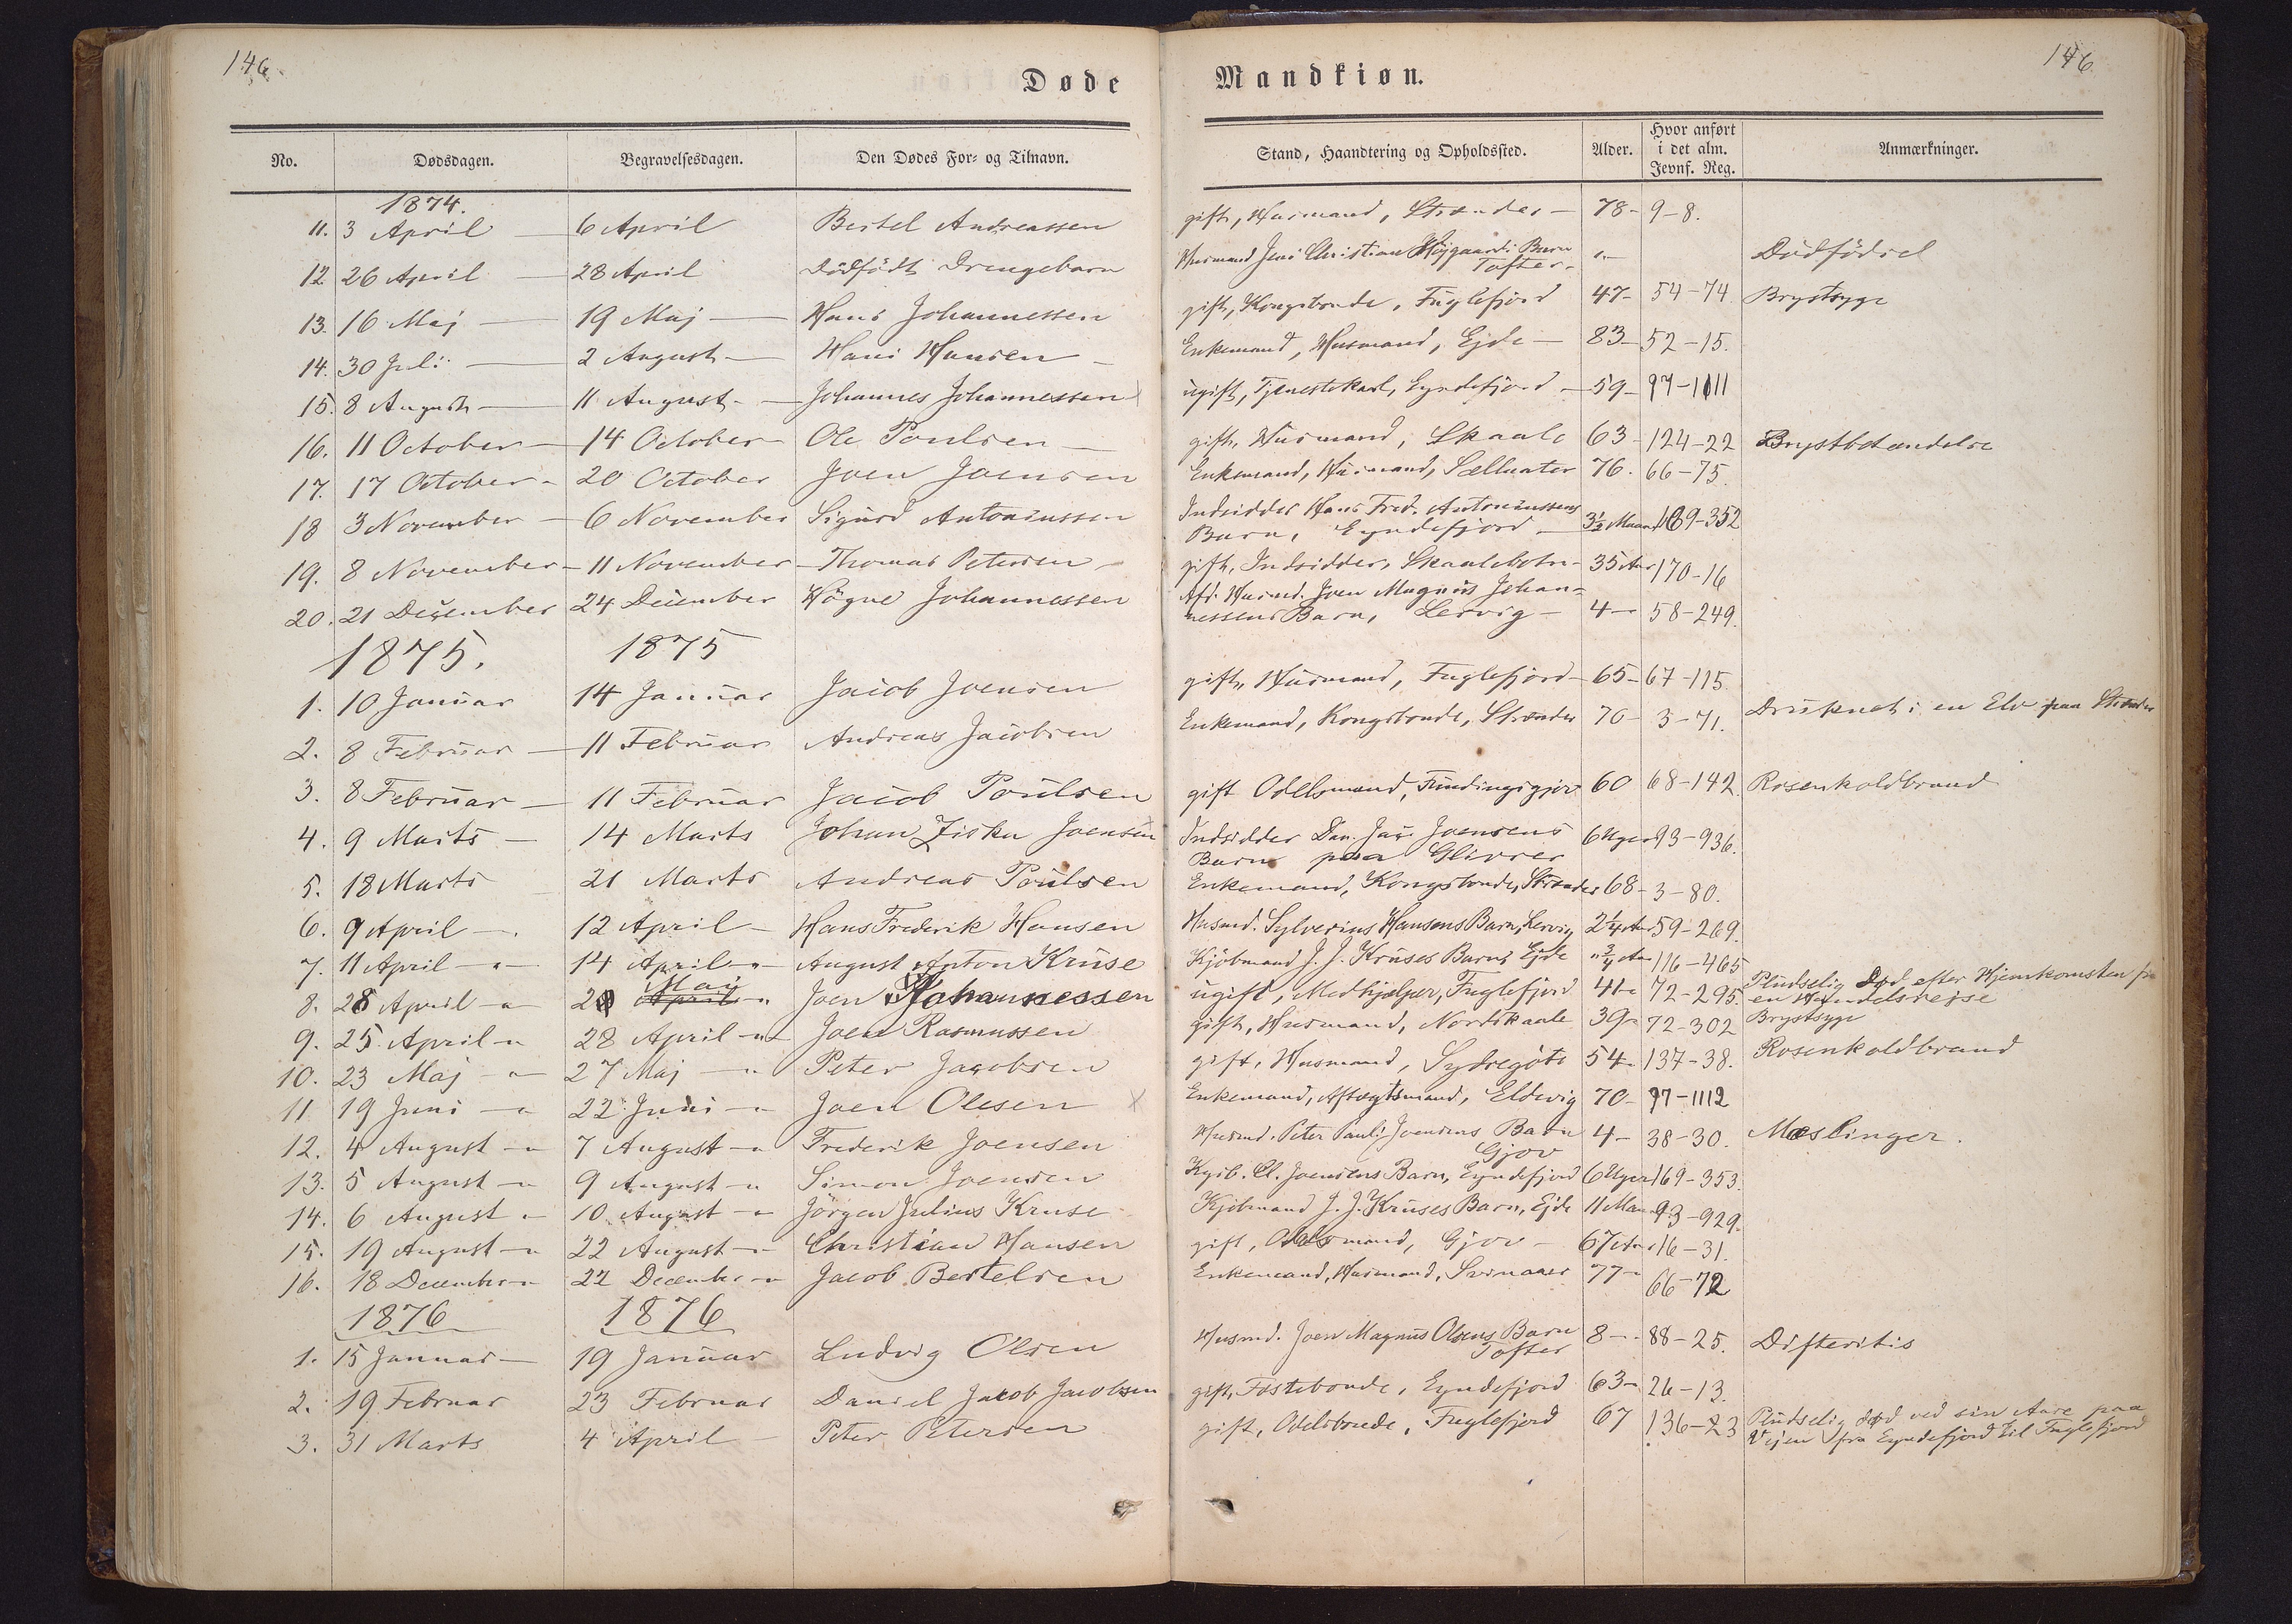 146.
146
Døde Mandkiøn.
No. Dødsdagen. Begravelsesdagen. Den Dødes For- og Tilnavn. Stand, Haandtering og Opholdssted. Alder. Hvor anført i det alm. Jevnf. Reg. Anmærkninger.
1874.
11. 3 April — 6 April Bertel Andreassen gift, Husmand, Strænder — 78 - 9-8.
12. 26 April — 28 April Dödfödt Drengebarn Husmand Jens Christian Höjgaards Barn Tofter - „- Dödfödsel
13. 16 Maj — 19 Maj — Hans Johannessen gift, Kongsbonde, Fuglefjord 47- 54-74 Brystsyge
14. 30 Juli — 2 August — Hans Hansen — Enkemand, Husmand, Ejde — 83- 52-15.
15. 8 August — 11 August — Johannes Johannessen ugift, Tjenestekarl, Eyndefjord — 59- 97-1111
16. 11 October — 14 October — Ole Poulsen — gift, Husmand, Skaale 63- 124-22 Brystbetændelse
17. 17 October - 20 October Joen Joensen Enkemand, Husmand, Sælletræ 76. 66-75.
18 3 November — 6 November Sigurd Antoniussen Indsidder Hans Fred. Antoniussens
Barn, Eyndefjord — 3½ Maan 169-352
19. 8 November — 11 November — Thomas Petersen — gift, Indsidder, Skaalebotn - 35 Aar 170-16
20. 21 December 24 December Högne Johannessen Afd. Husmd. Joen Magnus Johan-
nessens Barn, Lervig — 4— 58-249.
1875. 1875
1. 10 Januar 14 Januar Jacob Joensen gift, Husmand, Fuglefjord — 65- 67-115.
2. 8 Februar — 11 Februar Andreas Jacobsen Enkemand, Kongsbonde, Strænder 70- 3-71. Druknet i en Elv paa Strænder
3. 8 Februar — 11 Februar Jacob Poulsen gift Odelsmand, Fundingsgjov 60 68-142. Rosenkoldbrand
4. 9 Marts — 14 Marts Johan Ziska Joensen Indsidder Dan. Jac. Joensens
Barn paa Glivrer 6 Uger 93-936.
5. 18 Marts 21 Marts Andreas Poulsen Enkemand, Kongsbonde, Strænder 68- 3-80.
6. 9 April —. 12 April — Hans Frederik Hansen Husmd. Sylverius Hansens Barn, Lervig 2¼ Aar 59-269.
7. 11 April —„— 14 April —„— August Anton Kruse Kjöbmand J. J. Kruses Barn, Ejde „¾ Aar 116-465
8. 28 April —„ 2 April Maj „ Joen Johannessen ugift, Medhjælper, Fuglefjord 41-„ 72-295. Pludselig Död efter Hjemkomsten fra
en Handelsrejse
9. 25 April —„ 28 April —„ Joen Rasmussen gift, Husmand, Nordskaale 39-„ 72-302 Brystsyge
10. 23 Maj —„ 27 Maj —„ Peter Jacobsen gift, Husmand, Sydregöte 54-„ 137-38. Rosenkoldbrand
11. 19 Juni —„ 22 Juni —„ Joen Olesen x Enkemand, Aftægtsmand, Eldevig 70- 97-1112
12. 4 August —„ 7 August —„ Frederik Joensen Husmd. Peter Pauli Joensens Barn Gjov 4- 38-30. Mæslinger.
13. 5 August —„ 9 August —„ Simon Joensen Kgsb. Cl. Joensens Barn, Eyndefjord 6 Uger 169-353.
14. 6 August „ 10 August —„ Jörgen Julius Kruse Kjöbmand J. J. Kruses Barn, Ejde 11 Maan 93-929.
15. 19 August —„ 22 August —„ Christian Hansen gift, Odelsmand, Gjov — 67 Aar 16-31.
16. 18 December —„ 22 December —„ Jacob Bertelsen Enkemand, Husmand, Svinaaer 77-„ 66-72
1876 1876
1. 15 Januar — 19 Januar Ludvig Olsen Husmd. Joen Magnus Olsens Barn Tofter 8-. 88-25. Difteritis
2. 19 Februar 23 Februar Daniel Jacob Jacobsen gift, Fæstebonde, Eyndefjord 63- 26-13.
3. 31 Marts 4 April — Peter Petersen gift, Odelsbonde, Fuglefjord 67 136-23 Pludselig död ved sin Aare paa
Vejen fra Eyndefjord til Fuglefjord